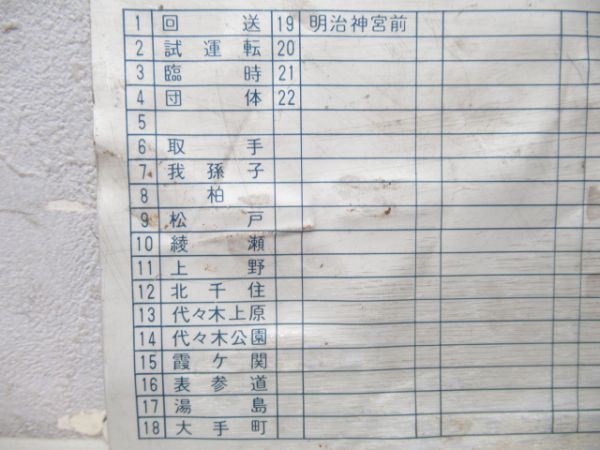 1 回送 19 明治神宮前
2 試運転 20
3 臨時 21
4 団体 22
5
6 取手
7 我孫子
8 柏
9 松戸
10 綾瀬
11 上野
12 北千住
13 代々木上原
14 代々木公園
15 霞ケ関
16 表参道
17 湯島
18 大手町